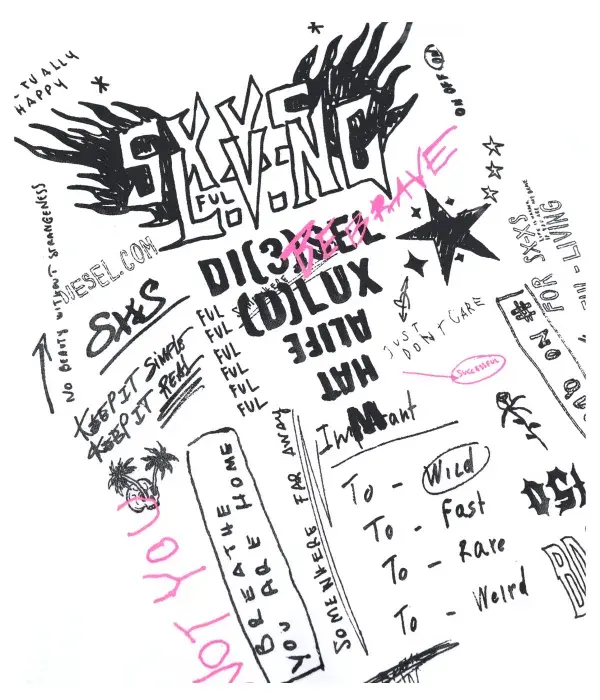 -TUALLY
HAPPY
ON OFF (ON)
SXVS
FUL
L.V.NG
BE BRAVE
NO BEAUTY WITHOUT STRANGENESS
DIESEL.COM
DI(3)SEL
(D)LUX
ALIFE
HAT
SX&S
KEEP IT SIMPLE
KEEP IT REAL
FUL
FUL
FUL
FUL
FUL
FUL
JUST
DON'T CARE
SUCCESSFUL
FOR SX-XS
LIVING
- LIVING
ON #
NOT YOU
BREATHE
YOU ARE HOME
SOMEWHERE FAR AWAY
To - Wild
To - Fast
To - Rare
To - Weird